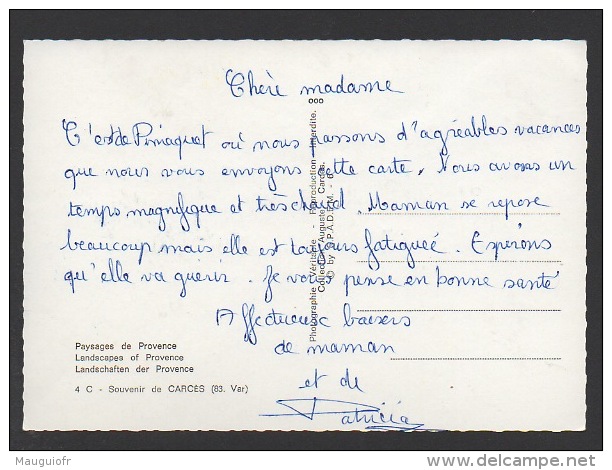 Chère madame
C'est de Pimaquet où nous passons d'agréables vacances
que nous vous envoyons cette carte. Nous avons un
temps magnifique et très chaud. Maman se repose
beaucoup mais elle est toujours fatigueé. Esperons
qu'elle va guerir. Je vous pense en bonne santé
Affectueuse baisers
de maman
et de
Patricia
Photographie Véritable - Reproduction Interdite.
Paysages de Provence
Landscapes of Provence
Landschaften der Provence
4 C - Souvenir de CARCÈS (83. Var)
Mauguiofr
delcampe.net